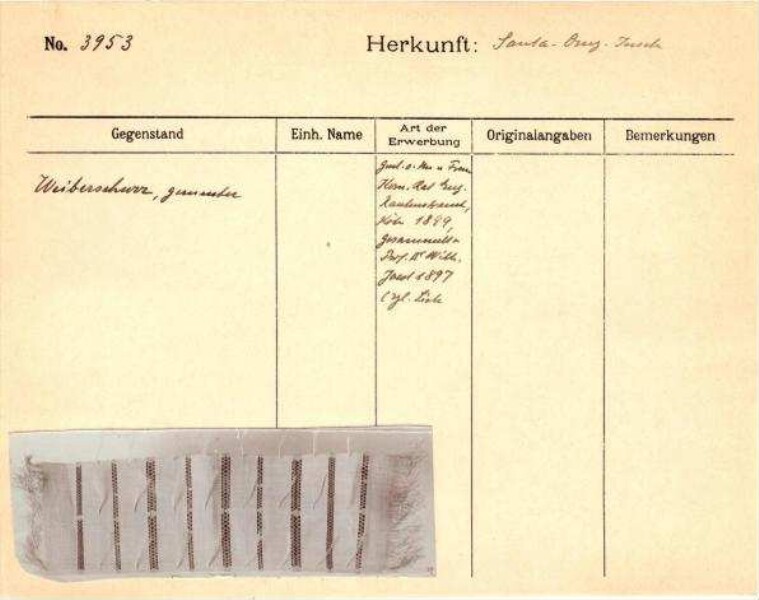 No. 3953
Herkunft: Santa-Cruz-Inseln
Gegenstand
Einh. Name
Art der
Erwerbung
Originalangaben
Bemerkungen
Weiberschurz, gemustert
Gesch. v. u. Frau
Kom. Rat Eug.
Rautenstrauch,
Köln 1899,
gesammelt v.
Prof. Dr Wilh.
Joest 1897
(vgl. Liste